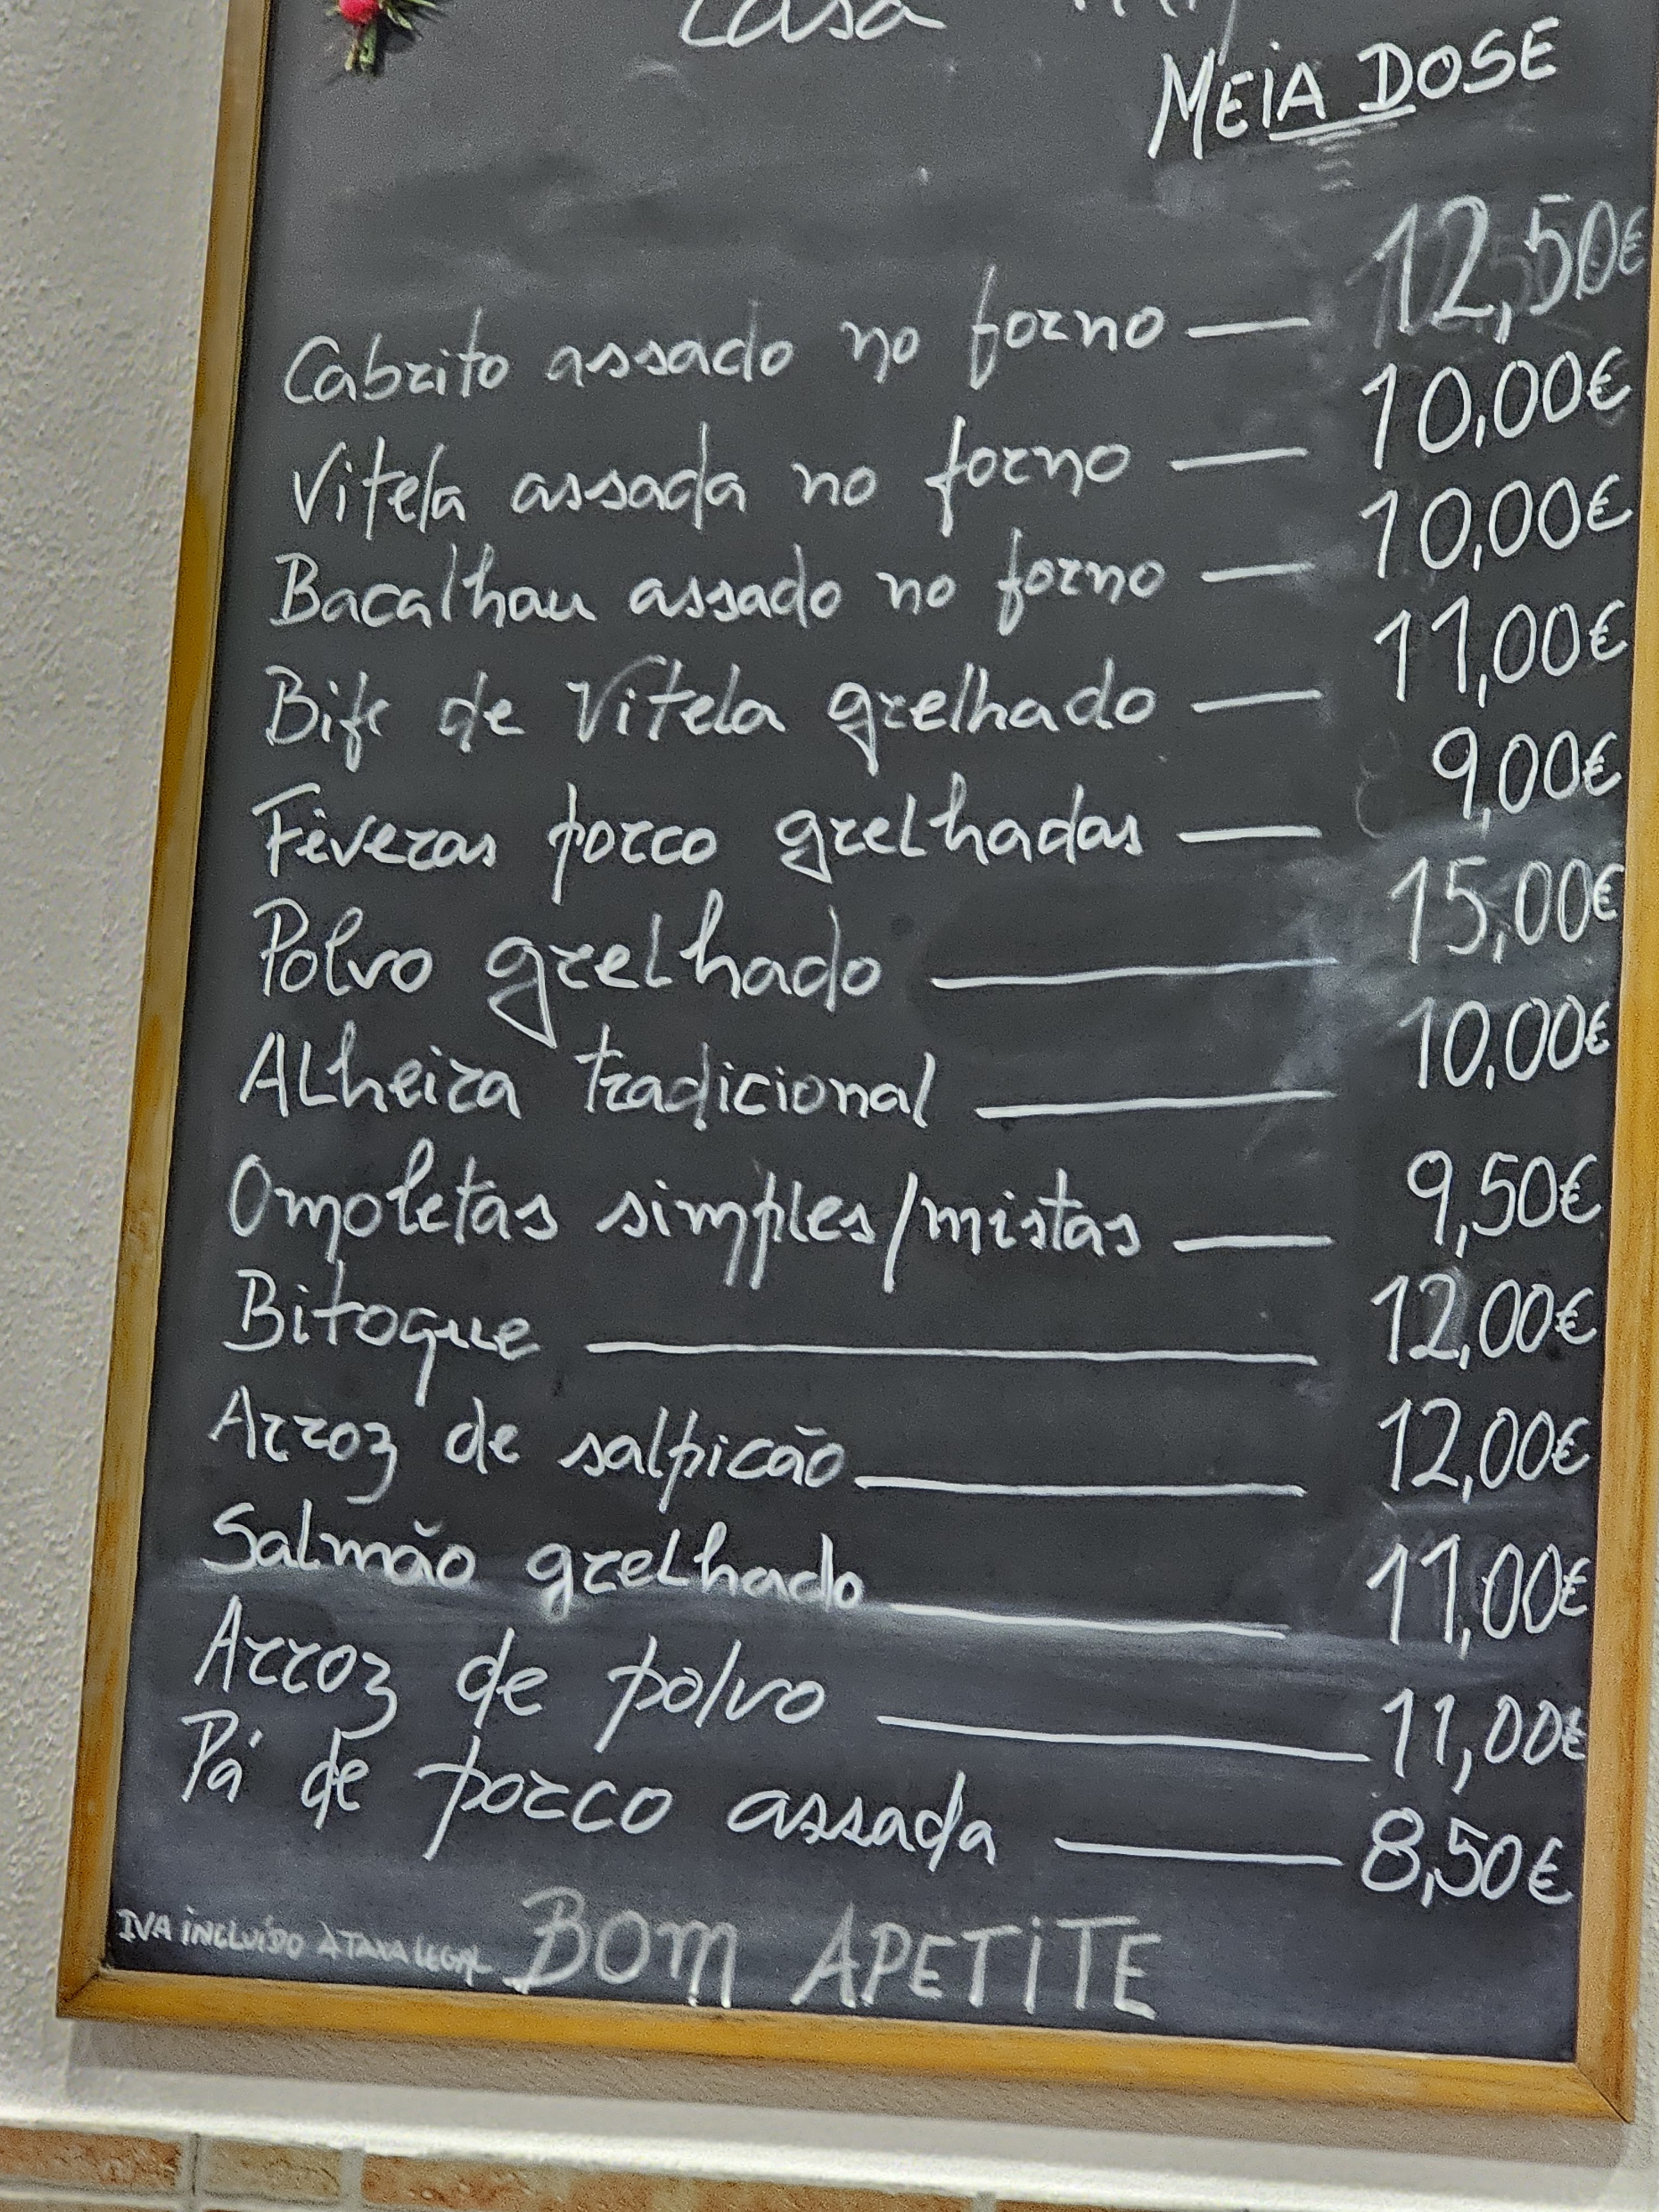 Casa
MEIA DOSE
Cabrito assado no forno — 12,50€
Vitela assada no forno — 10,00€
Bacalhau assado no forno — 10,00€
Bife de Vitela grelhado — 11,00€
Fêveras porco grelhadas — 9,00€
Polvo grelhado — 15,00€
Alheira tradicional — 10,00€
Omoletas simples/mistas — 9,50€
Bitoque — 12,00€
Arroz de salpicão — 12,00€
Salmão grelhado — 11,00€
Arroz de polvo — 11,00€
Pá de porco assada — 8,50€
IVA INCLUÍDO A TAXA LEGAL BOM APETITE